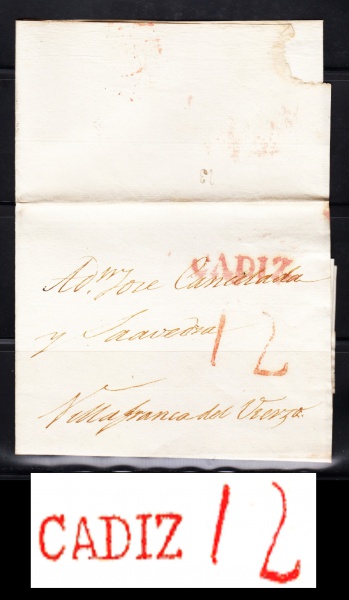 13
CADIZ
A Dn. Jose Cancelada
y Saavedra
12
Villafranca del Vierzo.
CADIZ 12